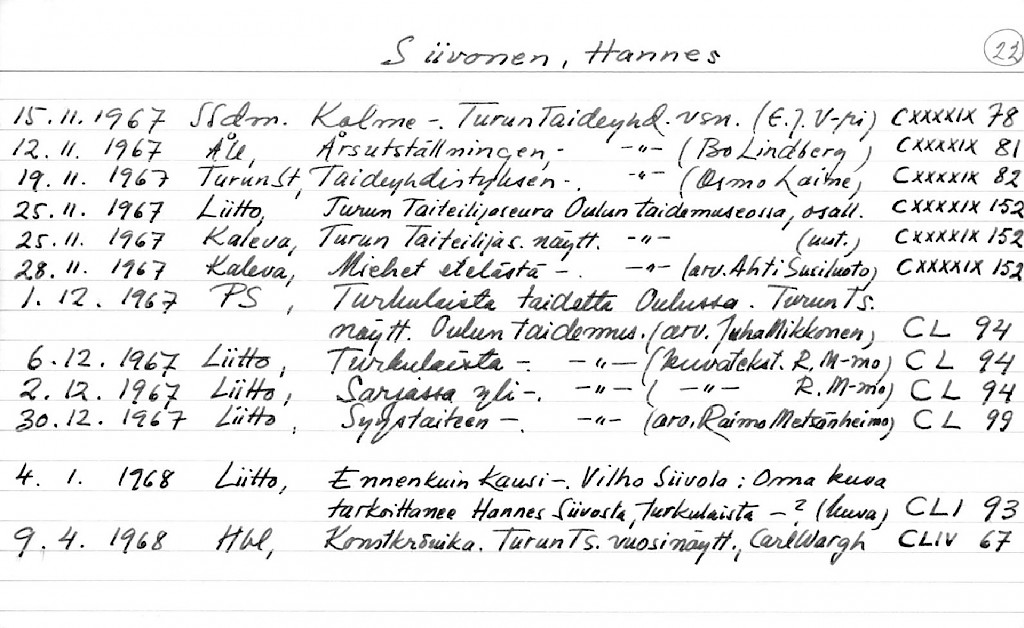 Siivonen, Hannes 22
15.11.1967 SSdm. Kolme -. Turun Taideyhd. vsn. (E.J. V-ri) CXXXXIX 78
12.11.1967 ÅU, Årsutställningen, - -"- (Bo Lindberg) CXXXXIX 81
19.11.1967 TurunSt, Taideyhdistyksen -. -"- (Osmo Laine) CXXXXIX 82
25.11.1967 Liitto, Turun Taiteilijaseura Oulun taidemuseossa, osall. CXXXXIX 152
25.11.1967 Kaleva, Turun Taiteilijas. näytt. -"- (uut.) CXXXXIX 152
28.11.1967 Kaleva, Miehet etelästä -. -"- (arv. Ahti Susiluoto) CXXXXIX 152
1.12.1967 PS, Turkulaista taidetta Oulussa. Turun Ts.
näytt. Oulun taidemus. (arv. Juha Mikkonen) CL 94
6.12.1967 Liitto, Turkulaista -. -"- (kuvatekst. R. M-mo) CL 94
2.12.1967 Liitto, Sarjassa yli -. -"- ( -"- R. M-mo) CL 94
30.12.1967 Liitto, Syystaiteen -. -"- (arv. Raimo Metsänheimo) CL 99
4.1.1968 Liitto, Ennenkuin Kausi -. Vilho Siivola: Oma kuva
tarkoittanee Hannes Siivosta, turkulaista -? (kuva) CLI 93
9.4.1968 Hbl, Konstkrönika. Turun Ts. vuosinäytt., Carl Wargh CLIV 67